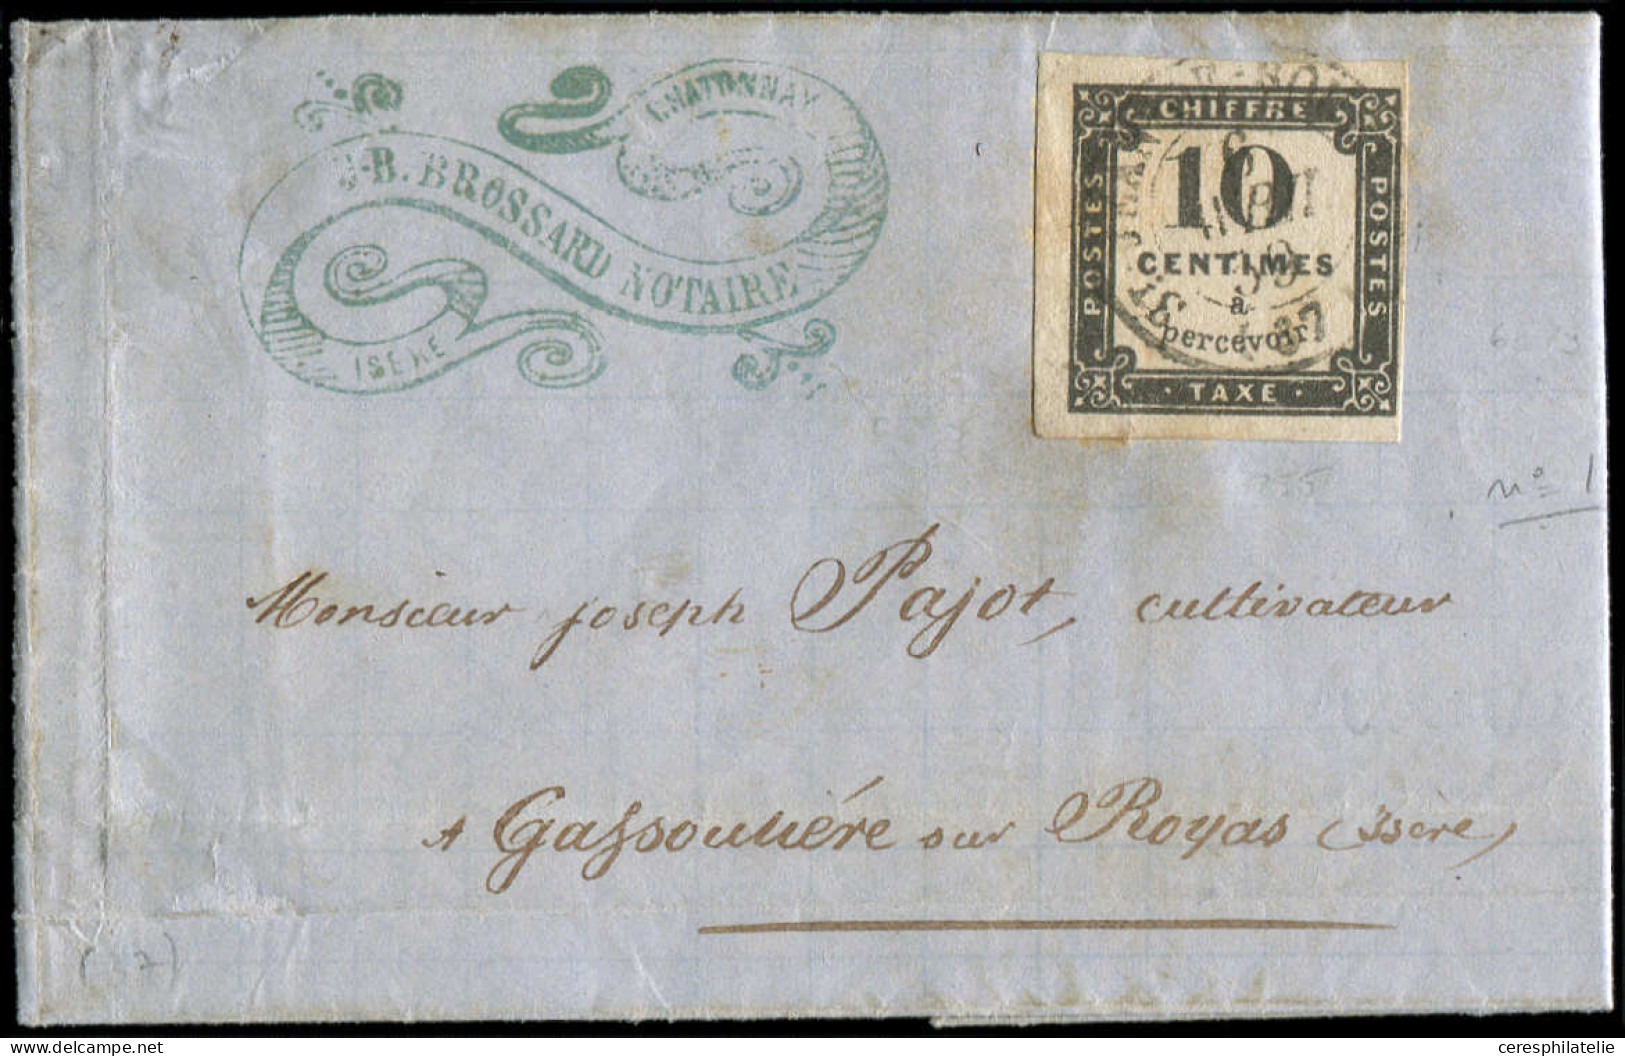 CHATONNAY
J-B. BROSSARD NOTAIRE
ISÈRE
CHIFFRE
POSTES
10
CENTIMES
à
percevoir
POSTES
TAXE
6
AVRIL
59
(37)
n° 1
Monsieur joseph Pajot, cultivateur
A Gassouliére sur Royas (Isère)
ceresphilatelie